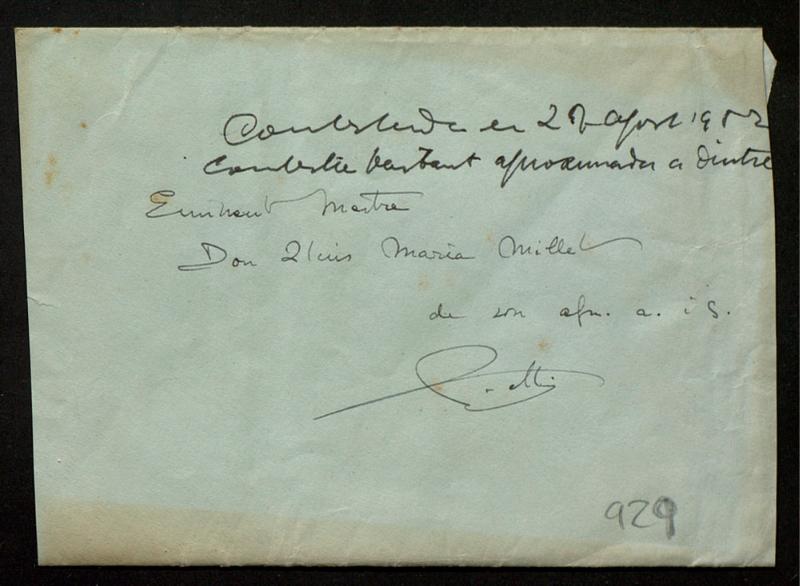 Contestada en 27 agost 19
Contestació bastant aproximada a dintre
Eminent Mestre
Don Lluis Maria Millet
de son afm. a. i S.
929